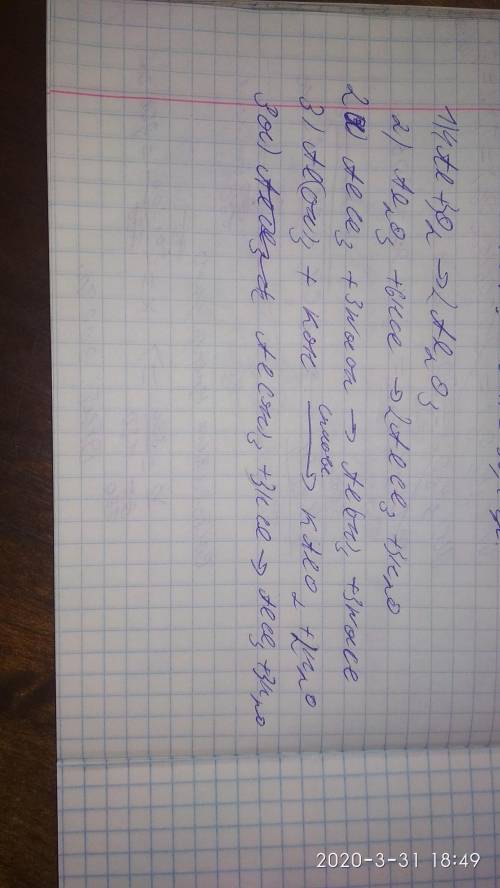 1) 4Al + 3O₂ → 2Al₂O₃
2) Al₂O₃ + 6HCl → 2AlCl₃ + 3H₂O
2a) AlCl₃ + 3NaOH → Al(OH)₃ + 3NaCl
3) Al(OH)₃ + KOH сплав → KAlO₂ + 2H₂O
3a) Al(OH)₃ + 3HCl → AlCl₃ + 3H₂O
2020-3-31 18:49